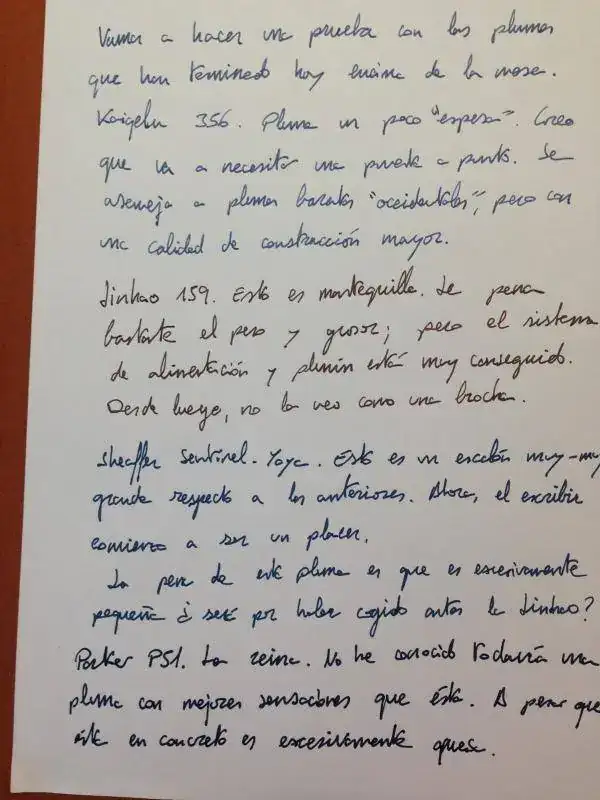 Vamos a hacer una prueba con las plumas
que han terminado hoy encima de la mesa.
Kaigelu 356. Pluma un poco "espesa". Creo
que va a necesitar una puesta a punto. Se
asemeja a plumas baratas "occidentales", pero con
una calidad de construcción mayor.
Jinhao 159. Esto es mantequilla. Le pena
bastante el peso y grosor; pero el sistema
de alimentación y plumín está muy conseguido.
Desde luego, no la veo como una brocha.
Sheaffer Sentinel. Esto es un escalón muy-muy
grande respecto a las anteriores. Ahora, el escribir
comienza a ser un placer.
La pena de esta pluma es que es excesivamente
pequeña ¿será por haber cogido antes la Jinhao?
Parker P51. La reina. No he conocido todavía una
pluma con mejores sensaciones que ésta. A pesar que
esta en concreto es excesivamente gruesa.